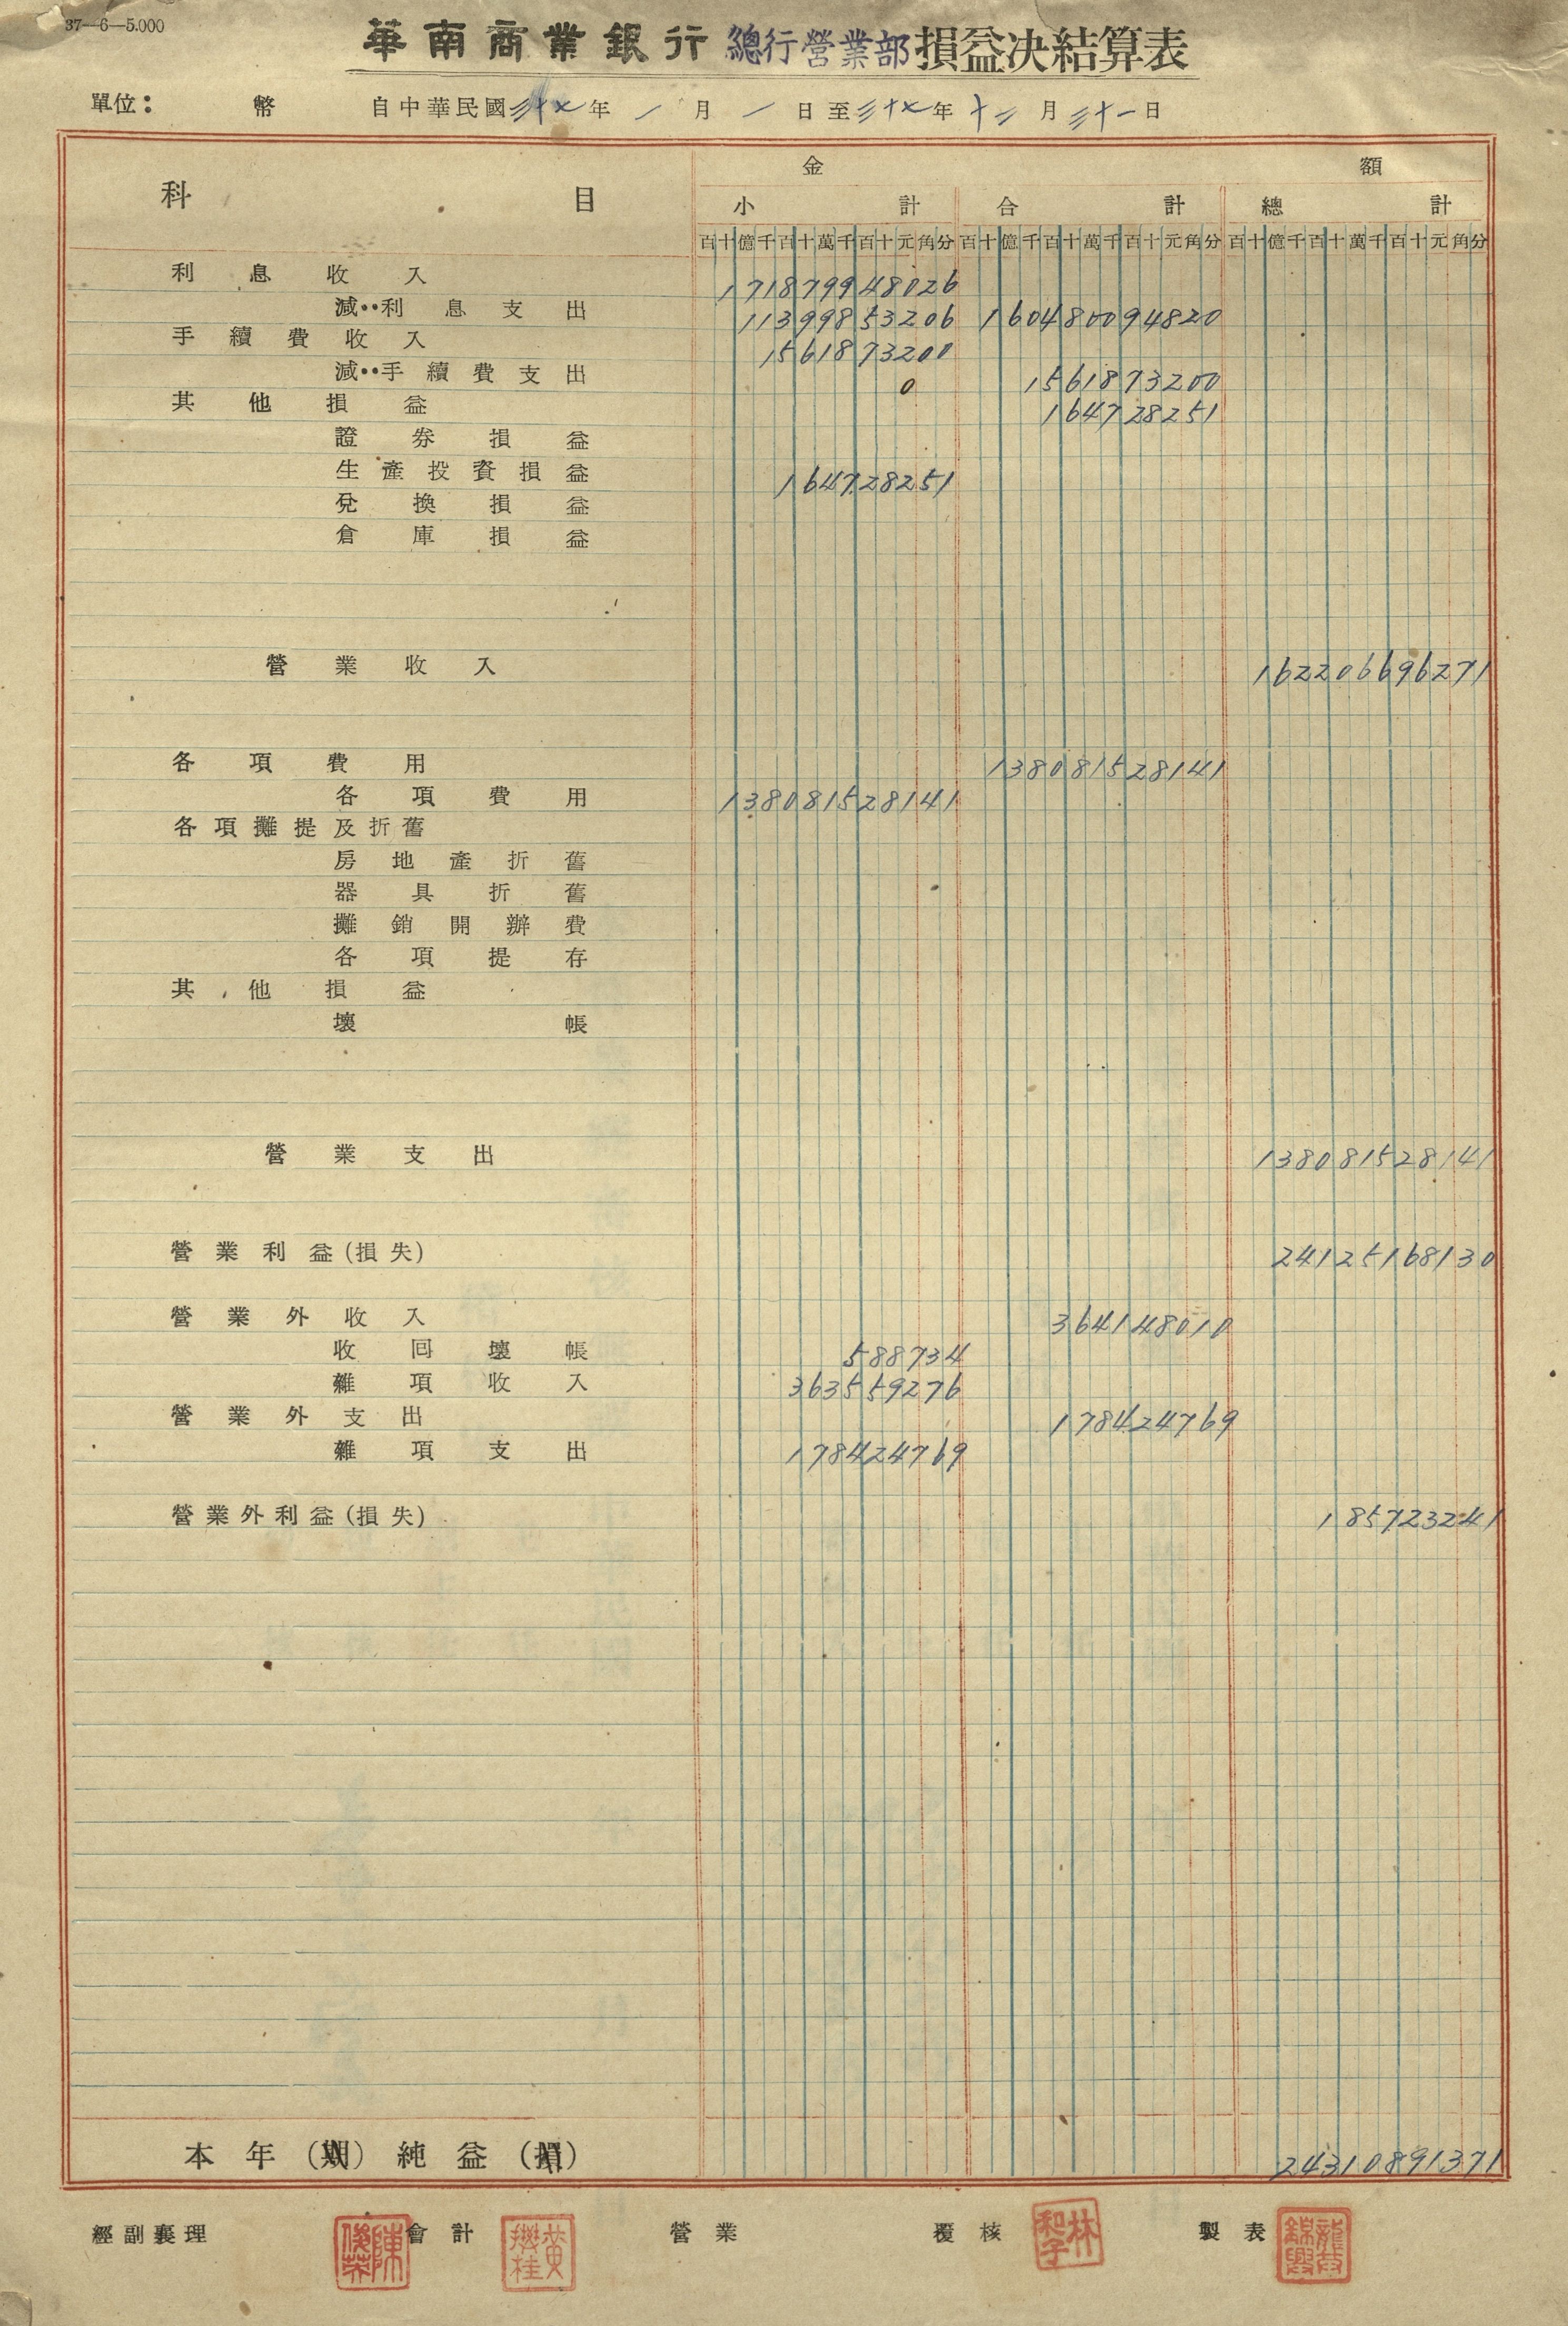 37—6—5.000
華南商業銀行 總行營業部 損益決結算表
單位： 幣 自中華民國三十七年一月一日至三十七年十二月三十一日
科目 金額
小計 合計 總計
百十億千百十萬千百十元角分 百十億千百十萬千百十元角分 百十億千百十萬千百十元角分
利息收入 171879948026
減：利息支出 11399853206 160480094820
手續費收入 1561873200
減：手續費支出 0 1561873200
其他損益 164728251
證券損益
生產投資損益 164728251
兌換損益
倉庫損益
營業收入 162206696271
各項費用 138081528141
各項費用 138081528141
各項攤提及折舊
房地產折舊
器具折舊
攤銷開辦費
各項提存
其他損益
壞帳
營業支出 138081528141
營業利益(損失) 24125168130
營業外收入 364148010
收回壞帳 588734
雜項收入 363559276
營業外支出 178424769
雜項支出 178424769
營業外利益(損失) 185723241
本年(期)純益(損) 24310891371
經副襄理 陳俊榮 會計 黃機桂 營業 覆核 林和子 製表